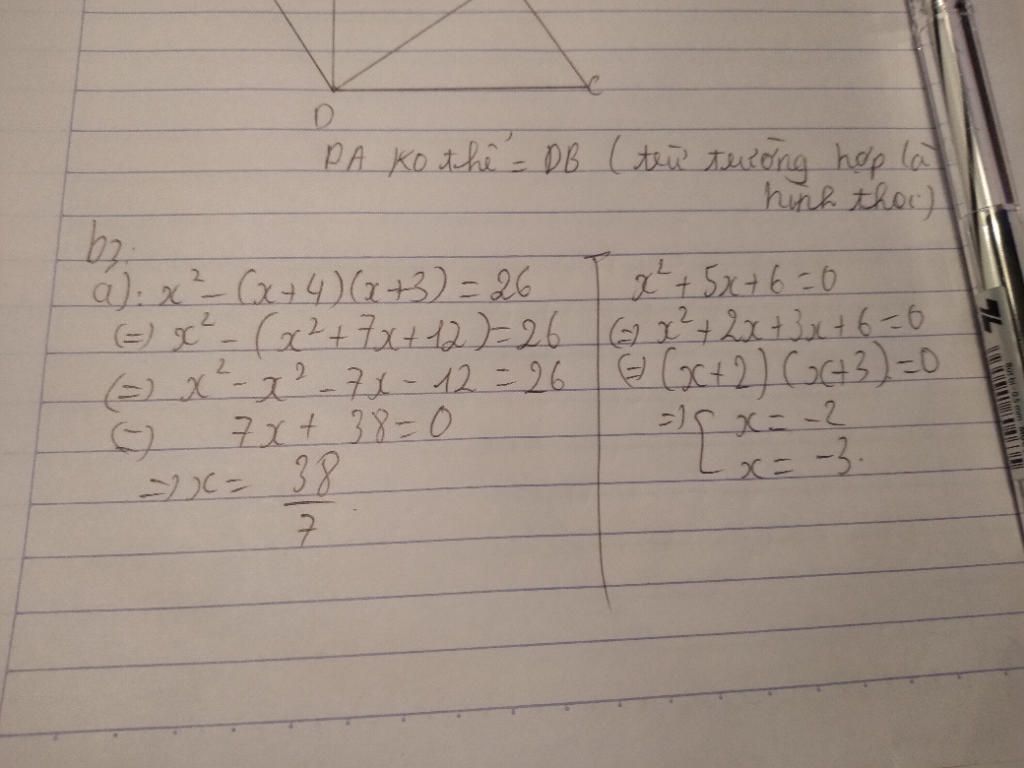 D
C
DA ko thể = DB (trừ trường hợp là
hình thoi)
b3:
a): x² - (x+4)(x+3) = 26
(=) x² - (x²+7x+12) = 26
(=) x² - x² - 7x - 12 = 26
(=) 7x + 38 = 0
=) x = 38/7
x² + 5x + 6 = 0
(=) x² + 2x + 3x + 6 = 0
(=) (x+2)(x+3) = 0
=) [ x = -2
x = -3.